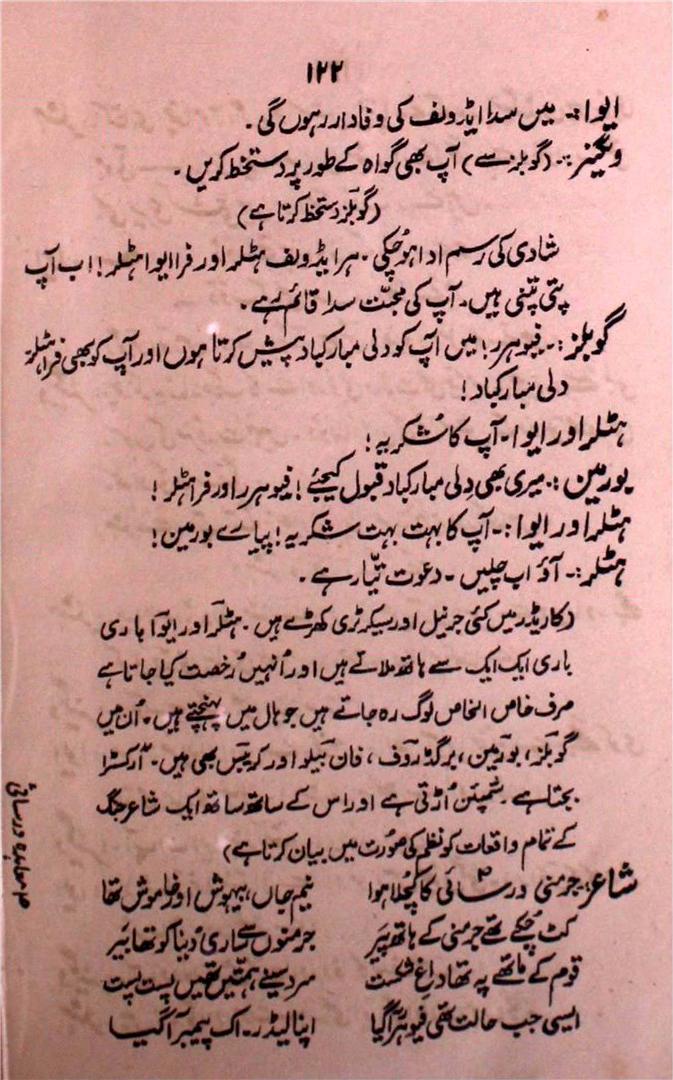 ۱۲۲
ایوا:۔ میں سدا ایڈولف کی وفادار رہوں گی۔
ویگنیر:۔ (گوبلز سے) آپ بھی گواہ کے طور پر دستخط کریں۔
(گوبلز دستخط کرتا ہے)
شادی کی رسم ادا ہو چکی۔ ہر ایڈولف ہٹلر اور فرا ایوا ہٹلر! اب آپ
پتی پتنی ہیں۔ آپ کی محبّت سدا قائم رہے۔
گوبلز:۔ فیوہرر! میں آپ کو دلی مبارکباد پیش کرتا ہوں اور آپ کو بھی فرا ہٹلر
دلی مبارکباد!
ہٹلر اور ایوا۔ آپ کا شکریہ!
بورمین:۔ میری بھی دِلی مبارکباد قبول کیجئے! فیوہرر اور فرا ہٹلر!
ہٹلر اور ایوا:۔ آپ کا بہت بہت شکریہ! پیارے بورمین!
ہٹلر:۔ آؤ اب چلیں۔ دعوت تیّار ہے۔
(کاریڈر میں کئی جرنیل اور سیکرٹری کھڑے ہیں۔ ہٹلر اور ایوا باری
باری ایک ایک سے ہاتھ ملاتے ہیں اور اُنہیں رُخصت کیا جاتا ہے
صرف خاص الخاص لوگ رہ جاتے ہیں جو ہال میں پہنچتے ہیں۔ اُن میں
گوبلز، بورمین، برگڈروف، فان بیلو اور کریبس بھی ہیں۔ آرکسٹرا
بجتا ہے۔ شمپئن اُڑتی ہے اور اس کے ساتھ ساتھ ایک شاعر جنگ
کے تمام واقعات کو نظم کی صورت میں بیان کرتا ہے)
شاعر:۔ جرمنی ورسائی۳ کا کچلا ہوا نیم جاں، بیہوش اور خاموش تھا
کٹ چُکے تھے جرمنی کے ہاتھ پَیر جرمنوں سے ساری دُنیا کو تھا بَیر
قوم کے ماتھے پہ تھا داغِ شکست مرد سہمے ہمّتیں تھیں پست پست
ایسی جب حالت تھی فیوہرر آ گیا اپنا لیڈر۔ اک پیمبر آ گیا
۳۔ معاہدہ ورسائی